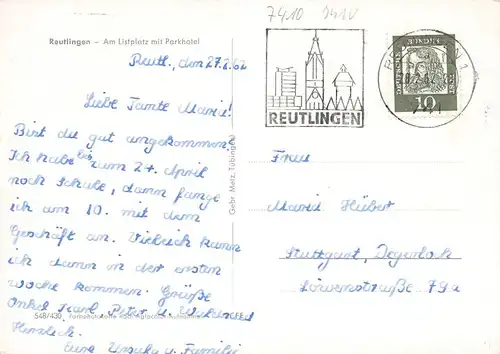 7410
Reutlingen – Am Listplatz mit Parkhotel
Reutl., den 27.2.62
REUTLINGEN
DEUTSCHE BUNDESPOST
10
Liebe Tante Maria!
Bist du gut angekommen.
Ich habe bis zum 2. April
noch Schule, dann fange
ich am 10. mit dem
Geschäft an. Vieleich kann
ich dann in der ersten
woche kommen. Grüße
Onkel Karl Peter u.
Herzlich.
Eure Ursula u. Familie
Gebr. Metz, Tübingen
548/430
Frau
Maria Hüber
Stuttgart Degerloch
Löwenstraße 79a